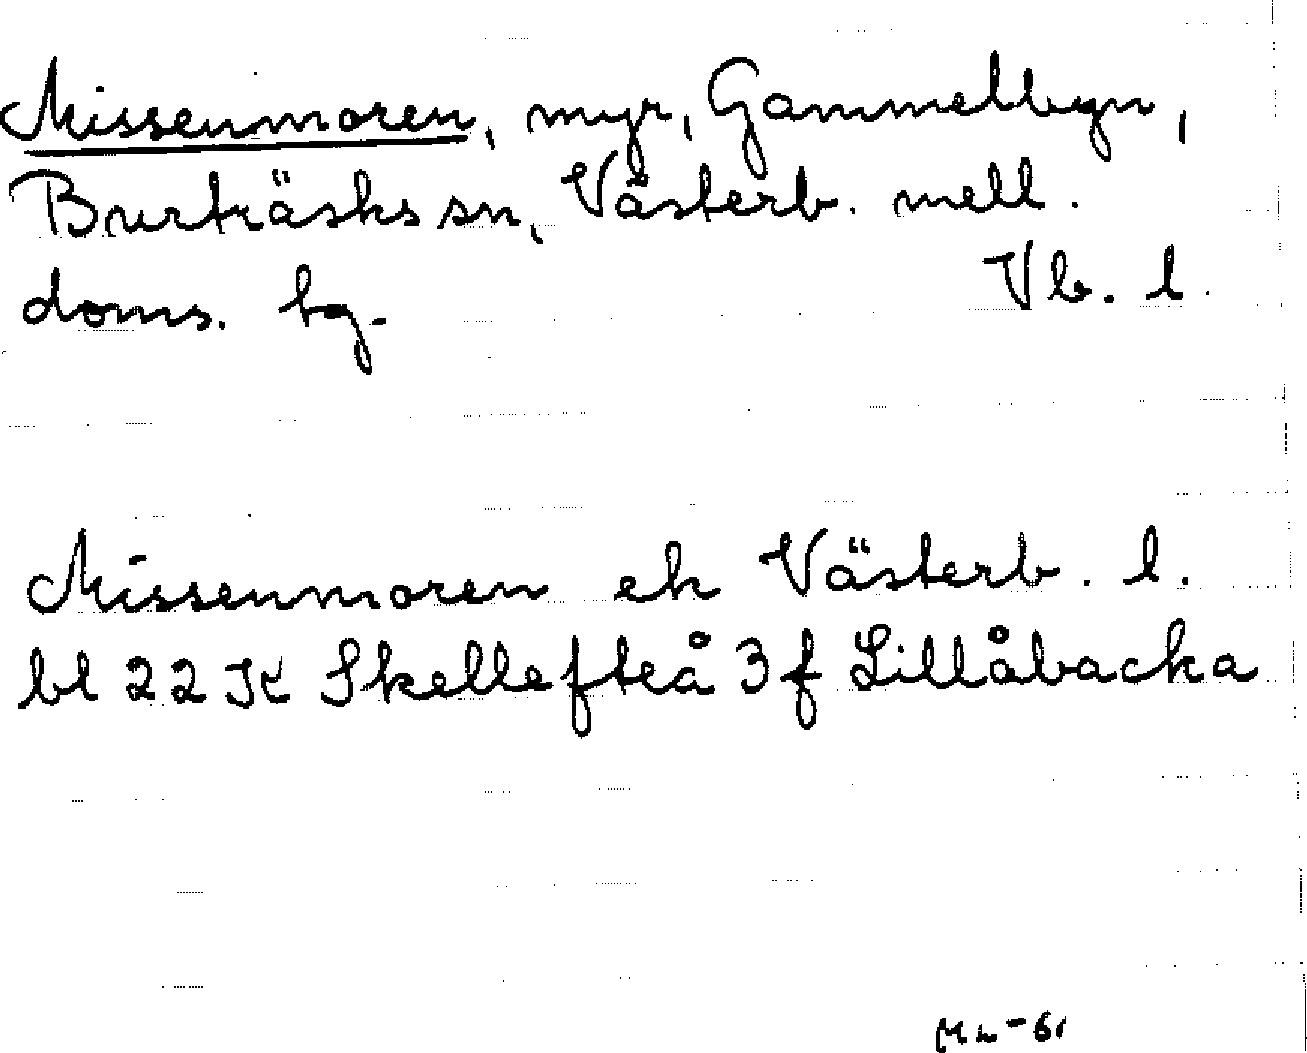 Missenmoren, myr, Gammelbyn,
Burträsks sn, Västerb. mell.
doms. hg. Vb. l.
Missenmoren ek Västerb. l.
bl 22 K Skellefteå 3 f Lillåbacka